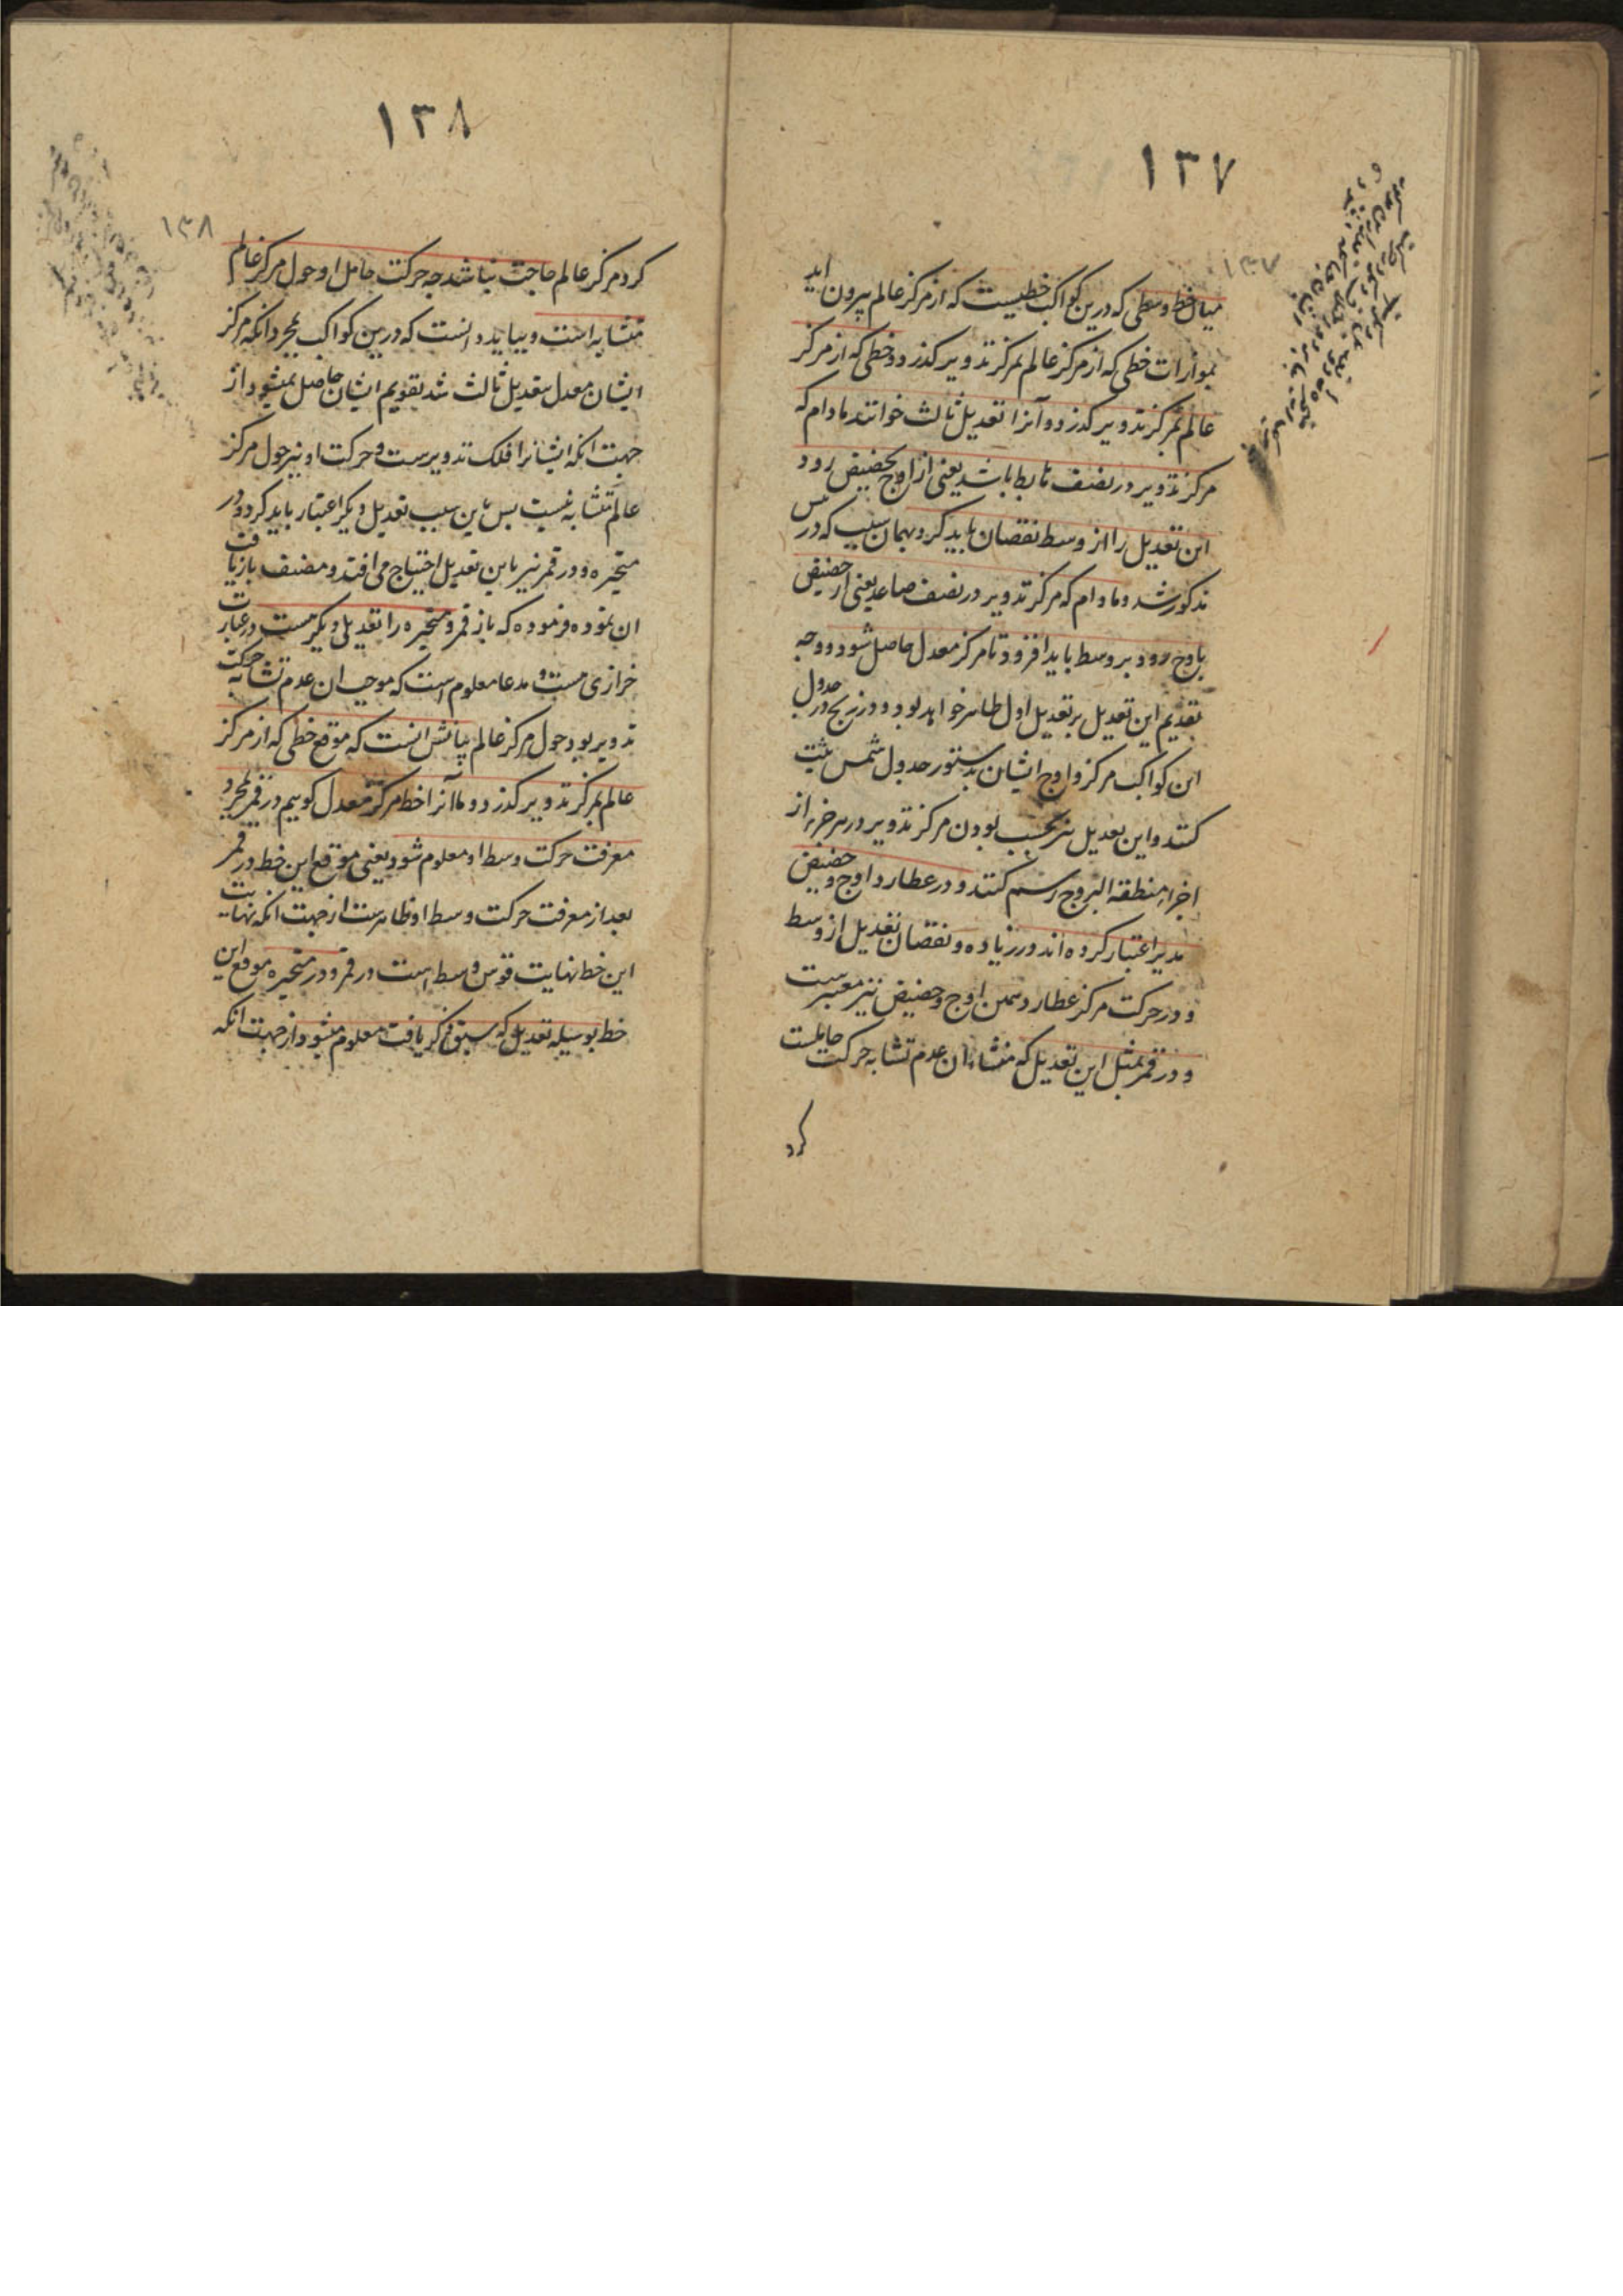 ۱۳۷
۱۳۷
میان خط وسطی که درین کواکب خطیست که از مرکز عالم بیرون اید
بموازات خطی که از مرکز عالم بمرکز تدویر کذرد و خطی که از مرکز
عالم بمرکز تدویر کذرد و آنرا تعدیل ثالث خوانند مادام که
مرکز تدویر در نصف هابط باشد یعنی از اوج بحضیض رود
این تعدیل را از وسط نقصان باید کرد بهمان سبب که در شمس
مذکور شد و مادام که مرکز تدویر در نصف صاعد یعنی از حضیض
باوج رود بر وسط باید افزود تا مرکز معدل حاصل شود و وجه
تقدیم این تعدیل بر تعدیل اول ظاهر خواهد بود و در زیج در جدول
این کواکب مرکز و اوج ایشان بدستور جدول شمس مثبت
کنند و این تعدیل نیز بحسب بودن مرکز تدویر در هر جزء از
اجزاء منطقة البروج رسم کنند و در عطارد اوج و حضیض
مدیر اعتبار کرده اند در زیاده و نقصان تعدیل از وسط
و در حرکت مرکز عطارد همین اوج و حضیض نیز معتبرست
و در قمر بمثل این تعدیل که منشاء ان عدم تشابه حرکت حاملست
کرد
۱۳۸
۱۳۸
کرد مرکز عالم حاجت نباشد چه حرکت حامل او حول مرکز عالم
متشابه است و بباید دانست که درین کواکب بمجرد انکه مرکز
ایشان معدل بتعدیل ثالث شد تقویم ایشان حاصل نمیشود از
جهت انکه ایشانرا فلک تدویرست و حرکت او نیز حول مرکز
عالم متشابه نیست بس باین سبب تعدیل دیکر اعتبار باید کرد و در
متحیره و در قمر نیز باین تعدیل احتیاج می افتد و مصنف بازیافت
ان نموده فرموده که باز قمر و متحیره را تعدیلی دیکر هست در عبارت
خرازی هست و مدعا معلوم است که موجب ان عدم تشابه حرکت
تدویر بود حول مرکز عالم بیانش انست که موقع خطی که از مرکز
عالم بمرکز تدویر کذرد و ما آنرا خط مرکز معدل کوییم در قمر بمجرد
معرفت حرکت وسط او معلوم شود یعنی موقع این خط در قمر
بعد از معرفت حرکت وسط او ظاهرست از جهت انکه نهایت
این خط نهایت قوس وسط است در قمر و در متحیره موقع این
خط بوسیله تعدیل که سبق ذکر یافت معلوم میشود از جهت انکه